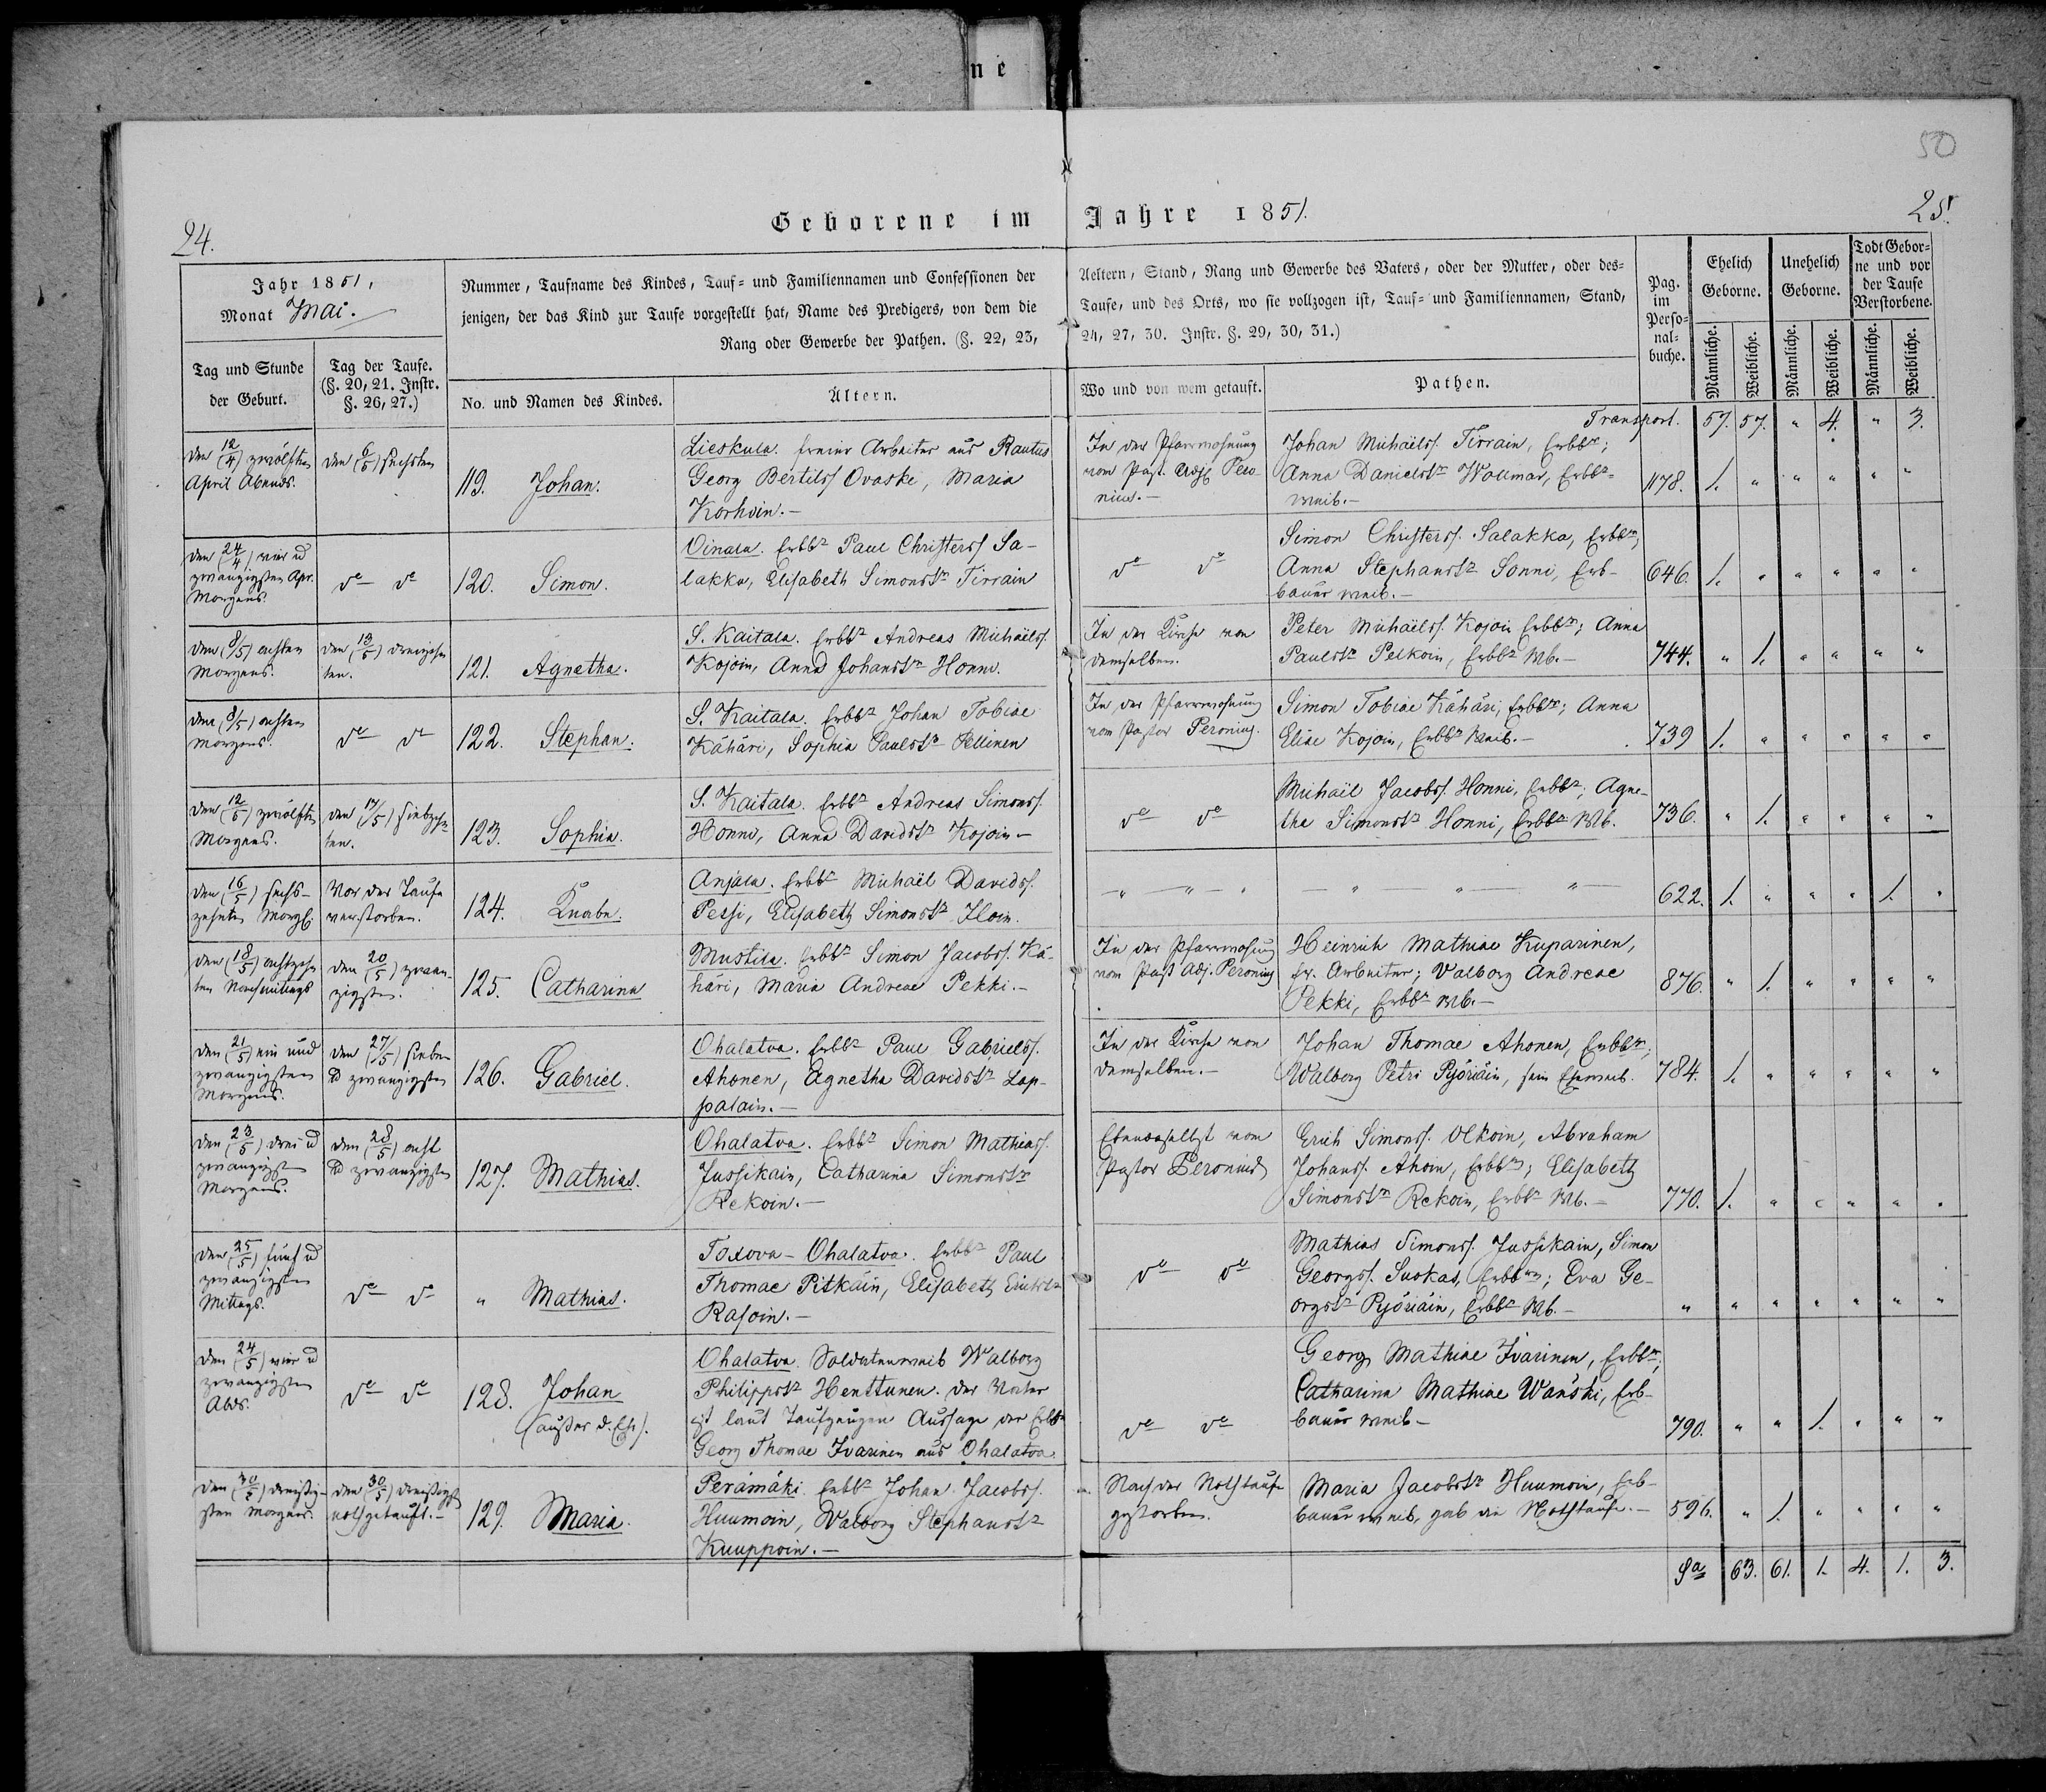 ne
50
24.
Geborene im Jahre 1851.
25.
Jahr 1851,
Monat Mai.
Nummer, Taufname des Kindes, Tauf- und Familiennamen und Confessionen der
jenigen, der das Kind zur Taufe vorgestellt hat, Name des Predigers, von dem die
Rang oder Gewerbe der Pathen. (§. 22, 23,
Aeltern, Stand, Rang und Gewerbe des Vaters, oder der Mutter, oder des-
Taufe, und des Orts, wo sie vollzogen ist, Tauf- und Familiennamen, Stand,
24, 27, 30. Instr. §. 29, 30, 31.)
Pag.
im
Perso-
nal-
buche.
Ehelich
Geborne.
Unehelich
Geborne.
Todt Gebor-
ne und vor
der Taufe
Verstorbene.
Männliche.
Weibliche.
Männliche.
Weibliche.
Männliche.
Weibliche.
Tag und Stunde
der Geburt.
Tag der Taufe.
(§. 20, 21. Instr.
§. 26, 27.)
No. und Namen des Kindes.
Ältern.
Wo und von wem getauft.
Pathen.
Transport. 57. 57. " 4. " 3.
den (12/4) zwölften
April Abends.
den (6/5) sechsten
119. Johan.
Lieskula. freier Arbeiter aus Rautus
Georg Bertilss Ovaske, Maria
Korhoin.-
In der Pfarrwohnung
vom Past. Adj. Pero
nius.-
Johan Michaëlss. Tirrain, Erbbr;
Anna Danielstr Wollmar, Erbbr-
weib.-
1178. 1. " " " " "
den (24/4) vier u
zwanzigsten Apr.
Morgens.
do do
120. Simon.
Oinala. Erbbr Paul Christerss Sa-
lakka, Elisabeth Simonstr Tirrain
do do
Simon Christerss. Salakka, Erbbr,
Anna Stephanstr Sonni, Erb-
bauer weib.-
646. 1. " " " " "
den (8/5) achten
Morgens.
den (13/5) dreizehn
ten.
121. Agnetha.
S. Kaitala. Erbbr Andreas Michaëlss.
Kojoin, Anna Johanstr Honni.
In der Kirche von
demselben.
Peter Michaëlss. Kojoin Erbbr; Anna
Paulstr Pelkoin, Erbbr Wb.-
744. " 1. " " " "
den (8/5) achten
Morgens.
do do
122. Stephan.
S. Kaitala. Erbbr Johan Tobiae
Kähäri, Sophia Paulstr Pellinen
In der Pfarrwohnung
vom Pastor Peronius.
Simon Tobiae Kähäri, Erbbr; Anna
Eliae Kojoin, Erbbr Weib.-
739 1. " " " " "
den (12/5) zwölften
Morgens.
den (17/5) siebzehn
ten.
123. Sophia.
S. Kaitala. Erbbr Andreas Simonss.
Honni, Anna Davidstr Kojoin-
do do
Michaël Jacobss. Honni, Erbbr; Agne-
tha Simonstr Honni, Erbbr Wb.
736. " 1. " " " "
den (16/5) sechs-
zehnten Morg.
Vor der Taufe
verstorben.
124. Knabe.
Anjala. Erbbr Michaël Davidss.
Pessi, Elisabeth Simonstr Iloin.
- " - " - " - " - " - " -
622. 1. " " " 1. "
den (18/5) achtzehn
ten Nachmittags
den (20/5) zwan-
zigsten.
125. Catharina
Mustila. Erbbr Simon Jacobss. Kä-
häri, Maria Andreae Pekki.-
In der Pfarrwohnung
vom Past Adj. Peronius
Heinrich Mathiae Kuparinen,
fr. Arbeiter; Valborg Andreae
Pekki, Erbbr Wb.-
876. " 1. " " " "
den (21/5) ein und
zwanzigsten
Morgens.
den (27/5) sieben
u zwanzigsten
126. Gabriel.
Ohalatva. Erbbr Paul Gabrielss.
Ahonen, Agnetha Davidstr Lap-
palain.-
In der Kirche von
demselben.-
Johan Thomae Ahonen, Erbbr;
Walborg Petri Pyöriäin, sein Eheweib.
784. 1. " " " " "
den (23/5) drei u
zwanzigsten
Morgens.
den (28/5) acht
u zwanzigsten
127. Mathias.
Ohalatva. Erbbr Simon Mathiass.
Jussikain, Catharina Simonstr
Rekoin.-
Ebendaselbst vom
Pastor Peronius
Erich Simonss. Olkoin, Abraham
Johanss. Ahoin, Erbbr; Elisabeth
Simonstr Rekoin, Erbbr Wb.-
770. 1. " " " " "
den (25/5) fünf u
zwanzigsten
Mittags.
do do
" Mathias.
Toxova-Ohalatva. Erbbr Paul
Thomae Pitkäin, Elisabeth Erichstr
Rasoin.-
do do
Mathias Simonss. Jussikain, Simon
Georgss. Suokas, Erbbr; Eva Ge-
orgstr Pyöriäin, Erbbr Wb.-
" " " " " " "
den (24/5) vier u
zwanzigsten
Abds.
do do
128. Johan
(außer d. Ehe).
Ohalatva. Soldatenweib Walborg
Philippstr Henttunen. Der Vater
ist laut Taufzeugen Aussage der Erbbr
Georg Thomae Ivarinen aus Ohalatva.
do do
Georg Mathiae Ivarinen, Erbbr;
Catharina Mathiae Wanski, Erb-
bauer weib-
790. " " 1. " " "
den (30/5) dreißig-
sten Morgens.
den (30/5) dreißigsten
nothgetauft.-
129. Maria.
Perämäki Erbbr Johan Jacobss.
Huumoin, Walborg Stephanstr
Kuuppoin.-
Nach der Nothtaufe
gestorben.
Maria Jacobstr Huumoin, Erb-
bauer weib, gab die Nothtaufe.-
596. " 1. " " " "
Sa 63. 61. 1. 4. 1. 3.